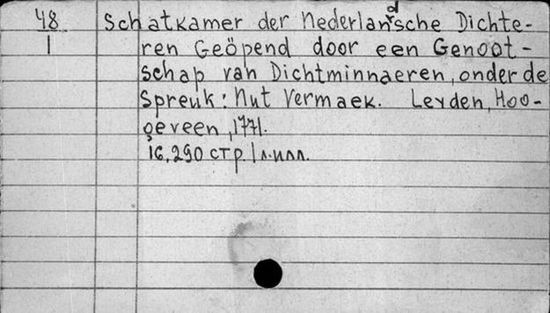 48 Schatkamer der Nederlandsche Dichte-
1 ren Geöpend door een Genoot-
schap van Dichtminnaeren, onder de
Spreuk: Nut Vermaek. Leyden, Hoo-
geveen, 1771.
16, 290 стр. 1 л. илл.